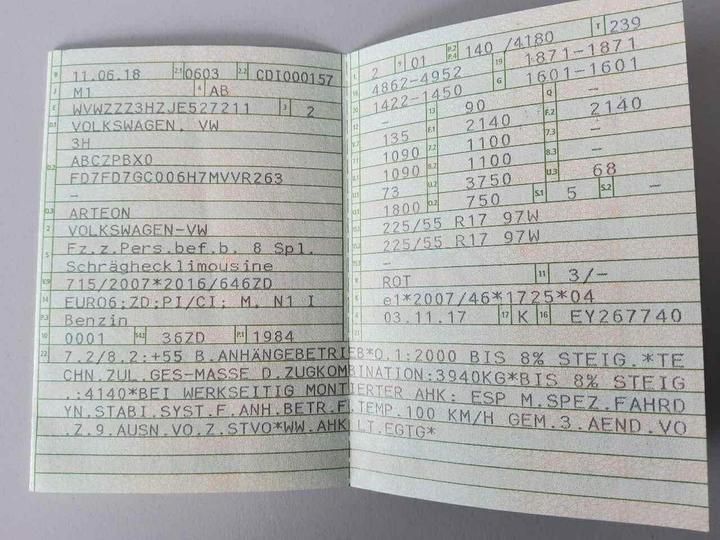 B 11.06.18 2.1 0603 2.2 CDI000157
J M1 4 AB
E WVWZZZ3HZJE527211 3 2
D.1 VOLKSWAGEN, VW
3H
D.2 ABCZPBX0
FD7FD7GC006H7MVVR263
–
D.3 ARTEON
2 VOLKSWAGEN-VW
5 Fz.z.Pers.bef.b. 8 Spl.
Schräghecklimousine
V.9 715/2007*2016/646ZD
14 EURO6;ZD;PI/CI; M, N1 I
P.3 Benzin
10 0001 36ZD P.1 1984
L 2 9 01 P.2 P.4 140 /4180 T 239
18 4862-4952 19 1871-1871
20 1422-1450 G 1601-1601
– 13 90 Q –
V.7 135 F.1 2140 F.2 2140
7.1 1090 7.2 1100 7.3 –
8.1 1090 8.2 1100 8.3 –
U.1 73 U.2 3750 U.3 68
O.1 1800 O.2 750 S.1 5 S.2 –
15.1 225/55 R17 97W
15.2 225/55 R17 97W
–
R ROT 11 3/-
K e1*2007/46*1725*04
6 03.11.17 17 K 16 EY267740
21
22 7.2/8.2:+55 B.ANHÄNGEBETRIEB*O.1:2000 BIS 8% STEIG.*TE
CHN.ZUL.GES-MASSE D.ZUGKOMBINATION:3940KG*BIS 8% STEIG
.:4140*BEI WERKSEITIG MONTIERTER AHK: ESP M.SPEZ.FAHRD
YN.STABI.SYST.F.ANH.BETR.F.TEMP.100 KM/H GEM.3.AEND.VO
.Z.9.AUSN.VO.Z.STVO*WW.AHK LT.EGTG*